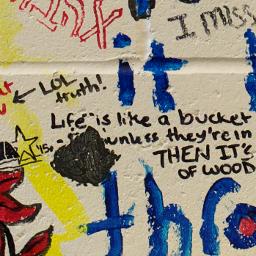 I miss
it
LOL
truth!
Life is like a bucket
unless they're in
THEN IT'S
OF WOOD
thro